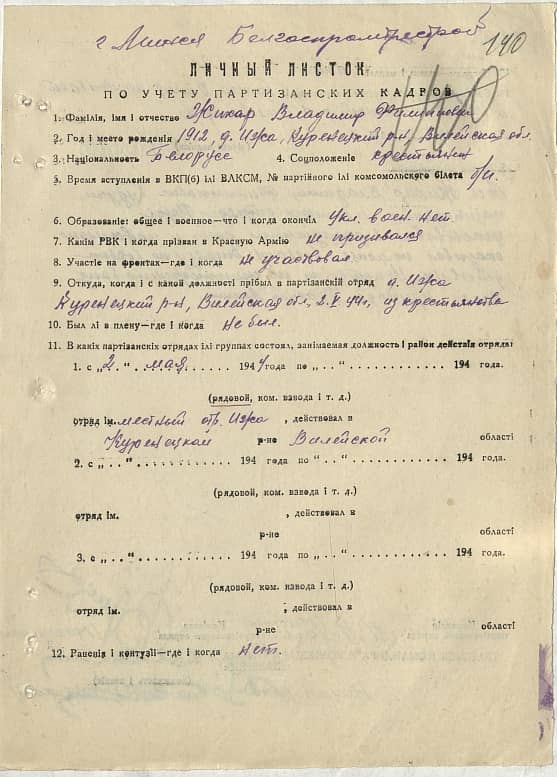 г Минск Белгоспромтрестрой
140
ЛИЧНЫЙ ЛИСТОК
ПО УЧЕТУ ПАРТИЗАНСКИХ КАДРОВ
1. Фамілія, імя і отчество Жихар Владимир Филиппович
2. Год і место рождения 1912, д. Ижа, Куренецкий р-н, Вилейская обл.
3. Національность Белорусс 4. Соцположение крестьянин
5. Время вступления в ВКП(б) ілі ВЛКСМ, № партійного ілі комсомольского білета б/п.
6. Образование: общее і военное—что і когда окончіл 4 кл. воен. нет.
7. Какім РВК і когда прізван в Красную Армію не призывался
8. Участіе на фронтах—где і когда не участвовал
9. Откуда, когда і с какой должності прібыл в партізанскій отряд д. Ижа
Куренецкий р-н, Вилейская обл., 2.V 44г., из крестьянства
10. Был лі в плену—где і когда не был.
11. В какіх партізанскіх отрядах ілі группах состоял, занімаемая должность і район действія отряда:
1. с „2.“ . мая. . . . 1944 года по „ . . “ . . . . . . . . . . . 194 года.
(рядовой, ком. взвода і т. д.)
отряд ім. местный отр. Ижа , действовал в
Куренецком р-не Вилейской області
2. с „ . . “ . . . . . . . . . . . . 194 года по “ . . “ . . . . . . . . . . . 194 года.
(рядовой, ком. взвода і т. д.)
отряд ім. , действовал в
р-не області
3. с „ . . “ . . . . . . . . . . . . 194 года по „ . . “ . . . . . . . . . . . 194 года.
(рядовой, ком. взвода і т. д.)
отряд ім. , действовал в
р-не області
12. Раненія і контузіі—где і когда нет.